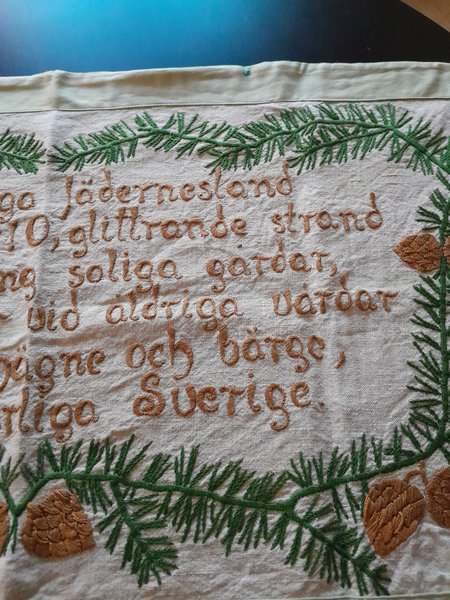 ga fädernesland
glittrande strand
ng soliga gårdar,
vid åldriga vårdar
ägne och bärge,
rliga Sverige.